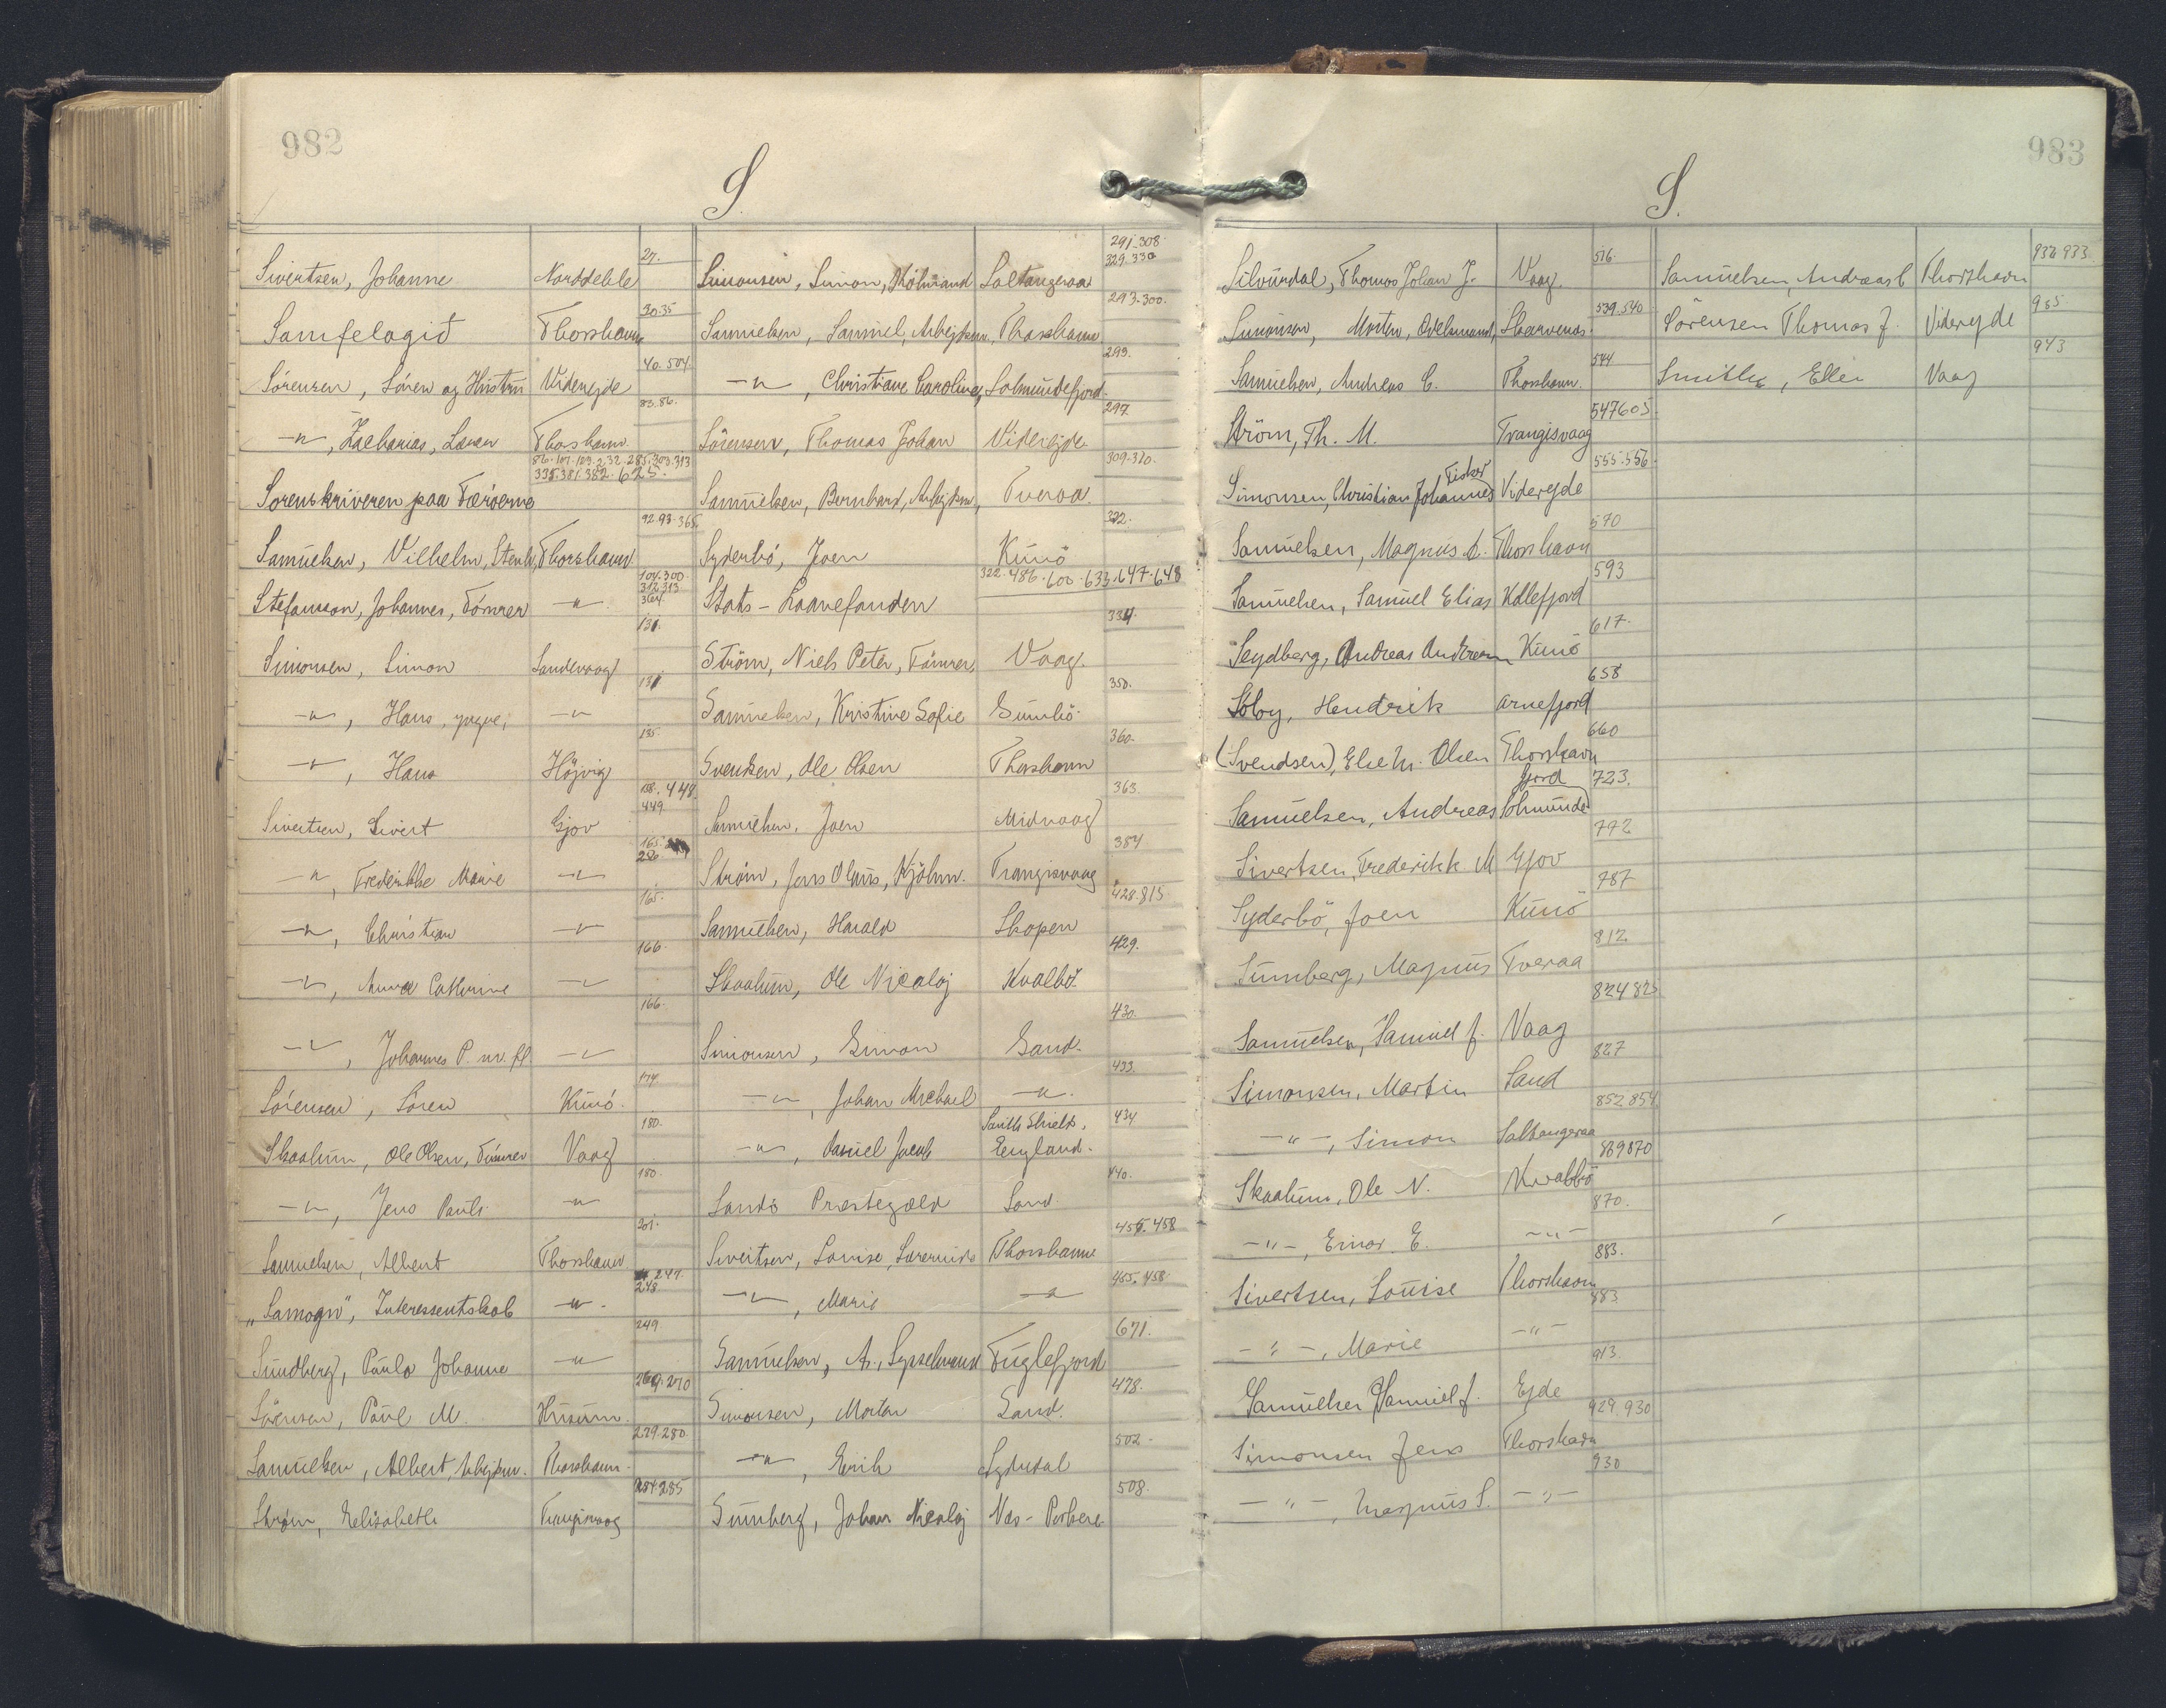 982
S.
Sivertsen, Johanne Norddeble 27.
Samfelagið Thorshavn 30.35
Sörensen, Sören og Hustru Viderejde 40. 504.
-"-, Zacharias, Lærer Thorshavn 83.86.
Sorenskriveren paa Færöerne 86.101.123.232.285.303.313 335.381.382.625.
Samuelsen, Vilhelm, Stenh, Thorshavn 92.93.365.
Stefansson, Johannes, Tömrer -"- 104.300. 312.313 364.
Simonsen, Simon Sandevaag 131.
-"-, Hans, yngre, -"- 131
-"-, Hans Höjvig 135.
Sivertsen, Sivert Gjov 138. 448. 449.
-"-, Frederikke Marie -"- 165. 286
-"-, Christian -"- 165.
-"-, Anna Cathrine -"- 166.
-"-, Johannes P. -"- 166.
Sörensen, Sören Kunö. 174.
Skaalum, Ole Olsen, Tömrer Vaag 180.
-"-, Jens Pauli -"- 180.
Samuelsen, Albert Thorshavn 201.
"Samogn", Interessentskab -"- 247. 248.
Sundberg, Paula Johanne -"- 249.
Sörensen, Paul M. Husum. 269.270
Samuelsen, Albert, Arbejdsm. Thorshavn. 279.280.
Ström, Elisabeth Trangisvaag 284.285
Simonsen, Simon, Kölmand Saltangeraa 291.308 329.330
Samuelsen, Samuel, Arbejdsm. Thorshavn 293.300.
-"-, Christiane Caroline, Solmundefjord 293.
Sörensen, Thomas Johan Viderejde 297.
Samuelsen, Bernhard, Arbejdsm, Tveraa. 309.310.
Syderbö, Joen Kunö 322.
Stats-Laanefonden 322.486.600.633.647.648
Ström, Niels Peter, Tömrer, Vaag. 334.
Samuelsen, Kristine Sofie Sumbö. 350.
Svendsen, Ole Olsen Thorshavn 360.
Samuelsen, Joen Midvaag 363.
Ström, Jens Olaus, Kjöbm. Trangisvaag 384
Samuelsen, Harald Skopen 428.815.
Skaalum, Ole Nicolaj Kvalbö. 429.
Simonsen, Simon Sand. 430.
-"-, Johan Michael -"-. 433.
-"-, Daniel Jacob South Shields, England. 434
Sandö Præstegæld Sand. 440.
Sivertsen, Louise, Lærerinde Thorshavn 455.458
-"-, Marie -"- 455.458.
Samuelsen, A., Sysselmand Fuglefjord 671.
Simonsen, Morten Sand. 478.
-"-, Erik Sydredal 502.
Sumberg, Johan Nicolaj Nes-Porkere 508.
983
S.
Silvurdal, Thomas Johan J. Vaag. 516.
Simonsen, Morten, Odelsmand, Skarvenes. 539.540.
Samuelsen, Andreas C. Thorshavn. 544.
Ström, Th. M. Trangisvaag 547 605.
Simonsen, Christian Johannes Fisker Videreide 555.556.
Samuelsen, Magnus A. Thorshavn 570
Samuelsen, Samuel Elias Kollefjord 593
Seydberg, Andreas Andreas Kunö 617.
Soloy, Hendrik Arnefjord 658
(Svendsen), Else M. Olsen Thorshavn 660
Samuelsen, Andreas Solmundefjord 723.
Sivertsen, Frederikk M Gjov 772
Syderbö, Joen Kunö 787
Sumberg, Magnus Tveraa 812
Samuelsen, Samuel J. Vaag 824 825.
Simonsen, Martin Sand 827
-"-, Simon Saltangeraa 852 854.
Skaalum, Ole N. Kvalbö 869 870
-"-, Einar E. -"- 870.
Sivertsen, Louise Thorshavn 883.
-"-, Marie -"- 883
Samuelsen Samuel J. Ejde 913.
Simonsen Jens Thorshavn 929.930
-"-, Magnus S. -"- 930
Samuelsen, Andreas C Thorshavn 932 933.
Sörensen Thomas J. Videreyde 935
Smith, Ellen Vaag 943